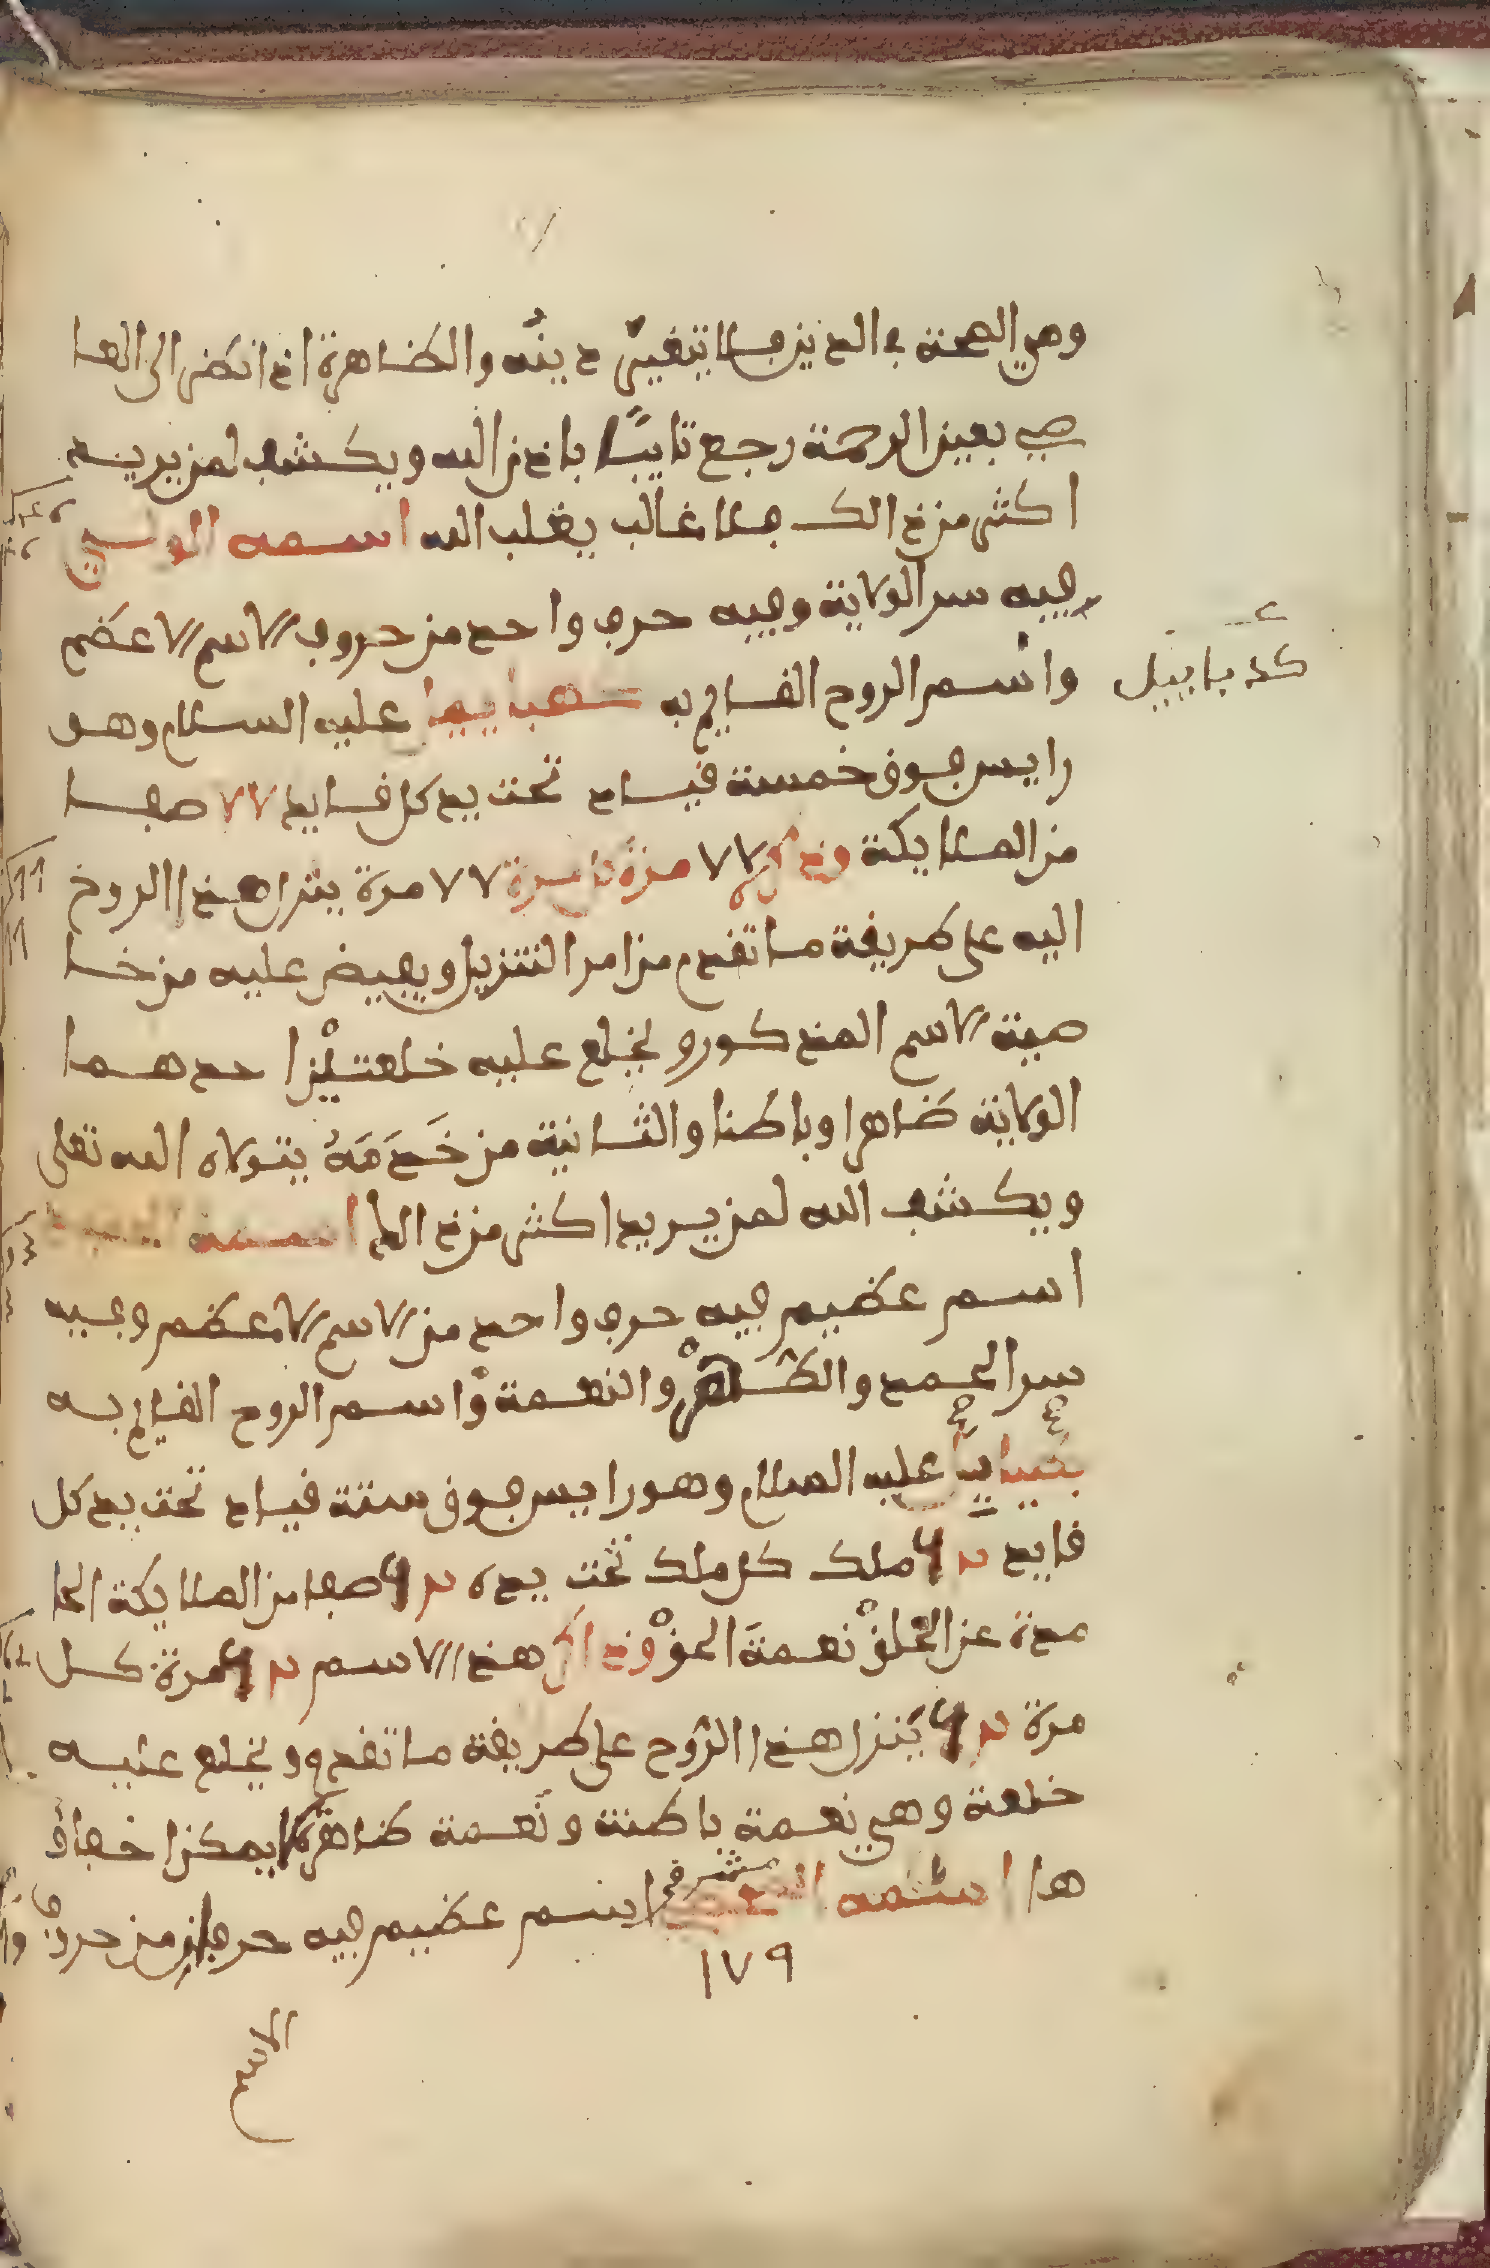 وهي الصحة في الدين فلا يتغير دينه والظاهرة اذا نظر الى العا
صي بعين الرحمة رجع تايبا باذن الله ويكشف لمن يريد
اكثر من ذالك فلا غالب يغلب الله اسمه الولي
فيه سر الولاية وفيه حرف واحد من حروف الاسم الاعظم
واسم الروح القايم به عليه السلام وهو
رايس فوق خمسة قياد تحت يد كل قايد ٧٧ صفا
من الملايكة وذكره ٧٧ مرة كل مرة ٧٧ مرة ينزل هذا الروح
اليه على طريقة ما تقدم من امر التنزيل ويفيض عليه من خا
صية الاسم المذكور ويخلع عليه خلعتين احدهما
الولاية ظاهرا وباطنا والثانية من خدمه يتولاه الله تعلى
ويكشف الله لمن يريد اكثر من ذالك اسمه
اسم عظيم فيه حرف واحد من الاسم الاعظم وفيه
سر الحمد والظاهر والنعمة واسم الروح القايم به
عليه السلام وهو رايس فوق ستة قياد تحت يد كل
قايد ملك كل ملك تحت يده صفا من الملايكة الحا
مدة عن الخلق نعمة الحق وذاكر هذا الاسم مرة كل
مرة ينزل هذا الروح على طريقة ما تقدم ويخلع عليه
خلعة وهي نعمة باطنة ونعمة ظاهرة لا يمكن اخفاؤ
ها اسمه اسم عظيم فيه حرفان من حروف
١٧٩
الاسم